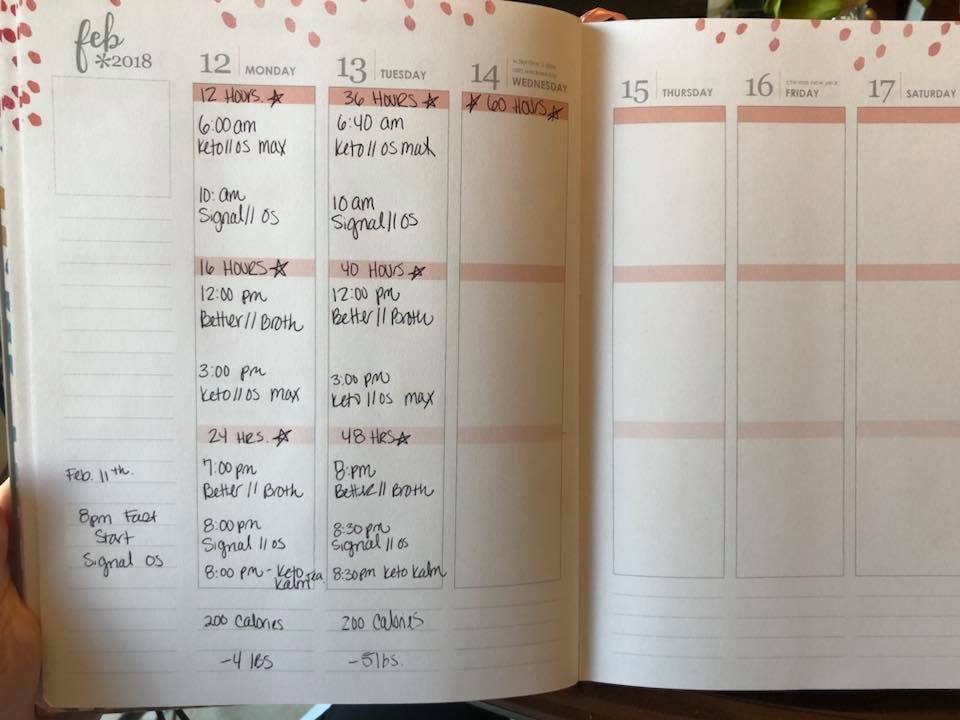 feb
*2018
12 MONDAY
12 HOURS. ☆
6:00 am
Keto//os max
10: am
Signal//OS
16 HOURS ☆
12:00 pm
Better//Broth
3:00 pm
Keto//os max
24 HRS. ☆
7:00pm
Better//Broth
8:00pm
Signal//os
8:00 pm - Keto
Kalm Tea
200 Calories
-4 lbs
13 TUESDAY
36 HOURS ☆
6:40 am
Keto//os max
10 am
Signal//OS
40 HOURS ☆
12:00 pm
Better//Broth
3:00 pm
Keto//os max
48 HRS ☆
8:pm
Better//Broth
8:30 pm
Signal//os
8:30pm Keto Kalm
200 Calories
-5lbs.
14 WEDNESDAY
☆ 60 HOURS ☆
15 THURSDAY
16 chinese new year
FRIDAY
17 SATURDAY
Feb. 11th.
8pm Fast
Start
Signal OS